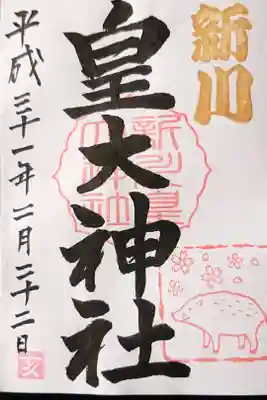 新川
皇大神社
新川皇
大神社
平成三十一年二月二十二日
亥